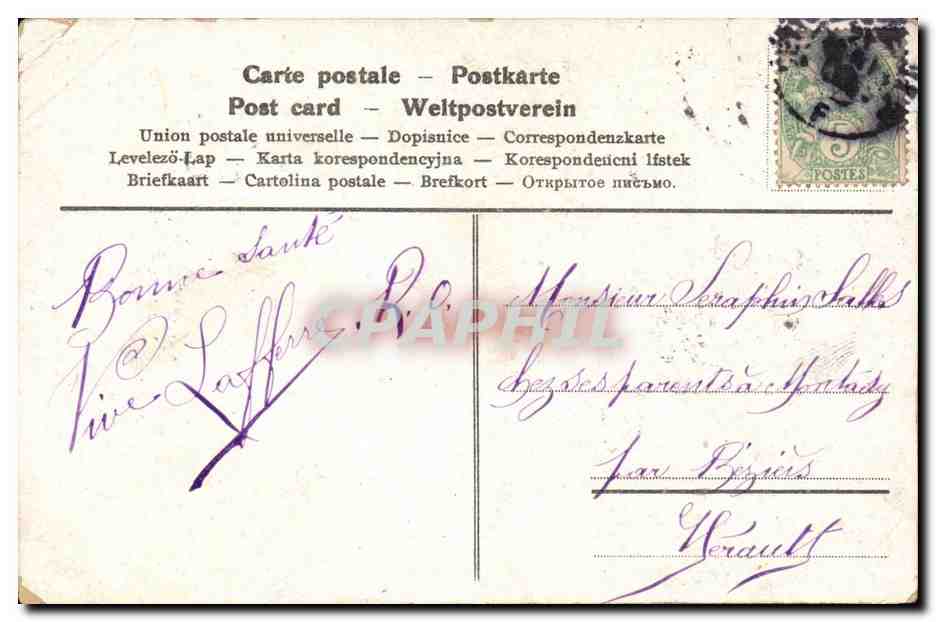 Carte postale – Postkarte
Post card – Weltpostverein
Union postale universelle — Dopisnice — Correspondenzkarte
Levelező-Lap — Karta korespondencyjna — Korespondeucni lfstek
Briefkaart — Cartolina postale — Brefkort — Открытое письмо.
5
POSTES
Bonne Santé
Vive Lafferre. R. O.
CPAPHIL
Monsieur Seraphin Salles
chez ses parents à Montady
par Béziers
Hérault